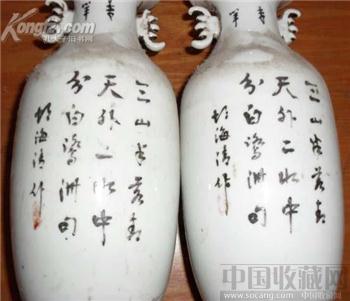 Kongfz.com
孔夫子旧书网
三山半落青
天外二水中
分白鷺洲句
海清作
三山半落青
天外二水中
分白鷺洲句
海清作
中国收藏网
www.socang.com